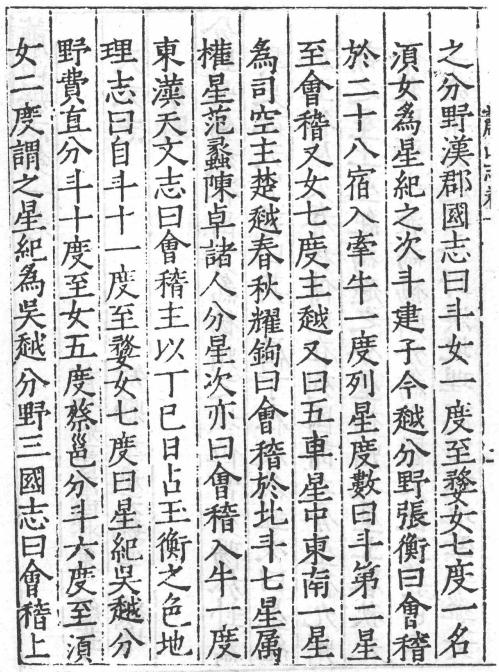 之分野漢郡國志曰斗女一度至婺女七度一名
湏女為星紀之次斗建子今越分野張衡曰會稽
於二十八宿入牽牛一度列星度數曰斗第二星
至會稽又女七度主越又曰五車星中東南一星
為司空主楚越春秋耀鉤曰會稽於北斗七星属
權星范蠡陳卓諸人分星次亦曰會稽入牛一度
東漢天文志曰會稽主以丁巳日占玉衡之色地
理志曰自斗十一度至婺女七度曰星紀吳越分
野費直分斗十度至女五度蔡邕分斗六度至湏
女二度謂之星紀為吳越分野三國志曰會稽上